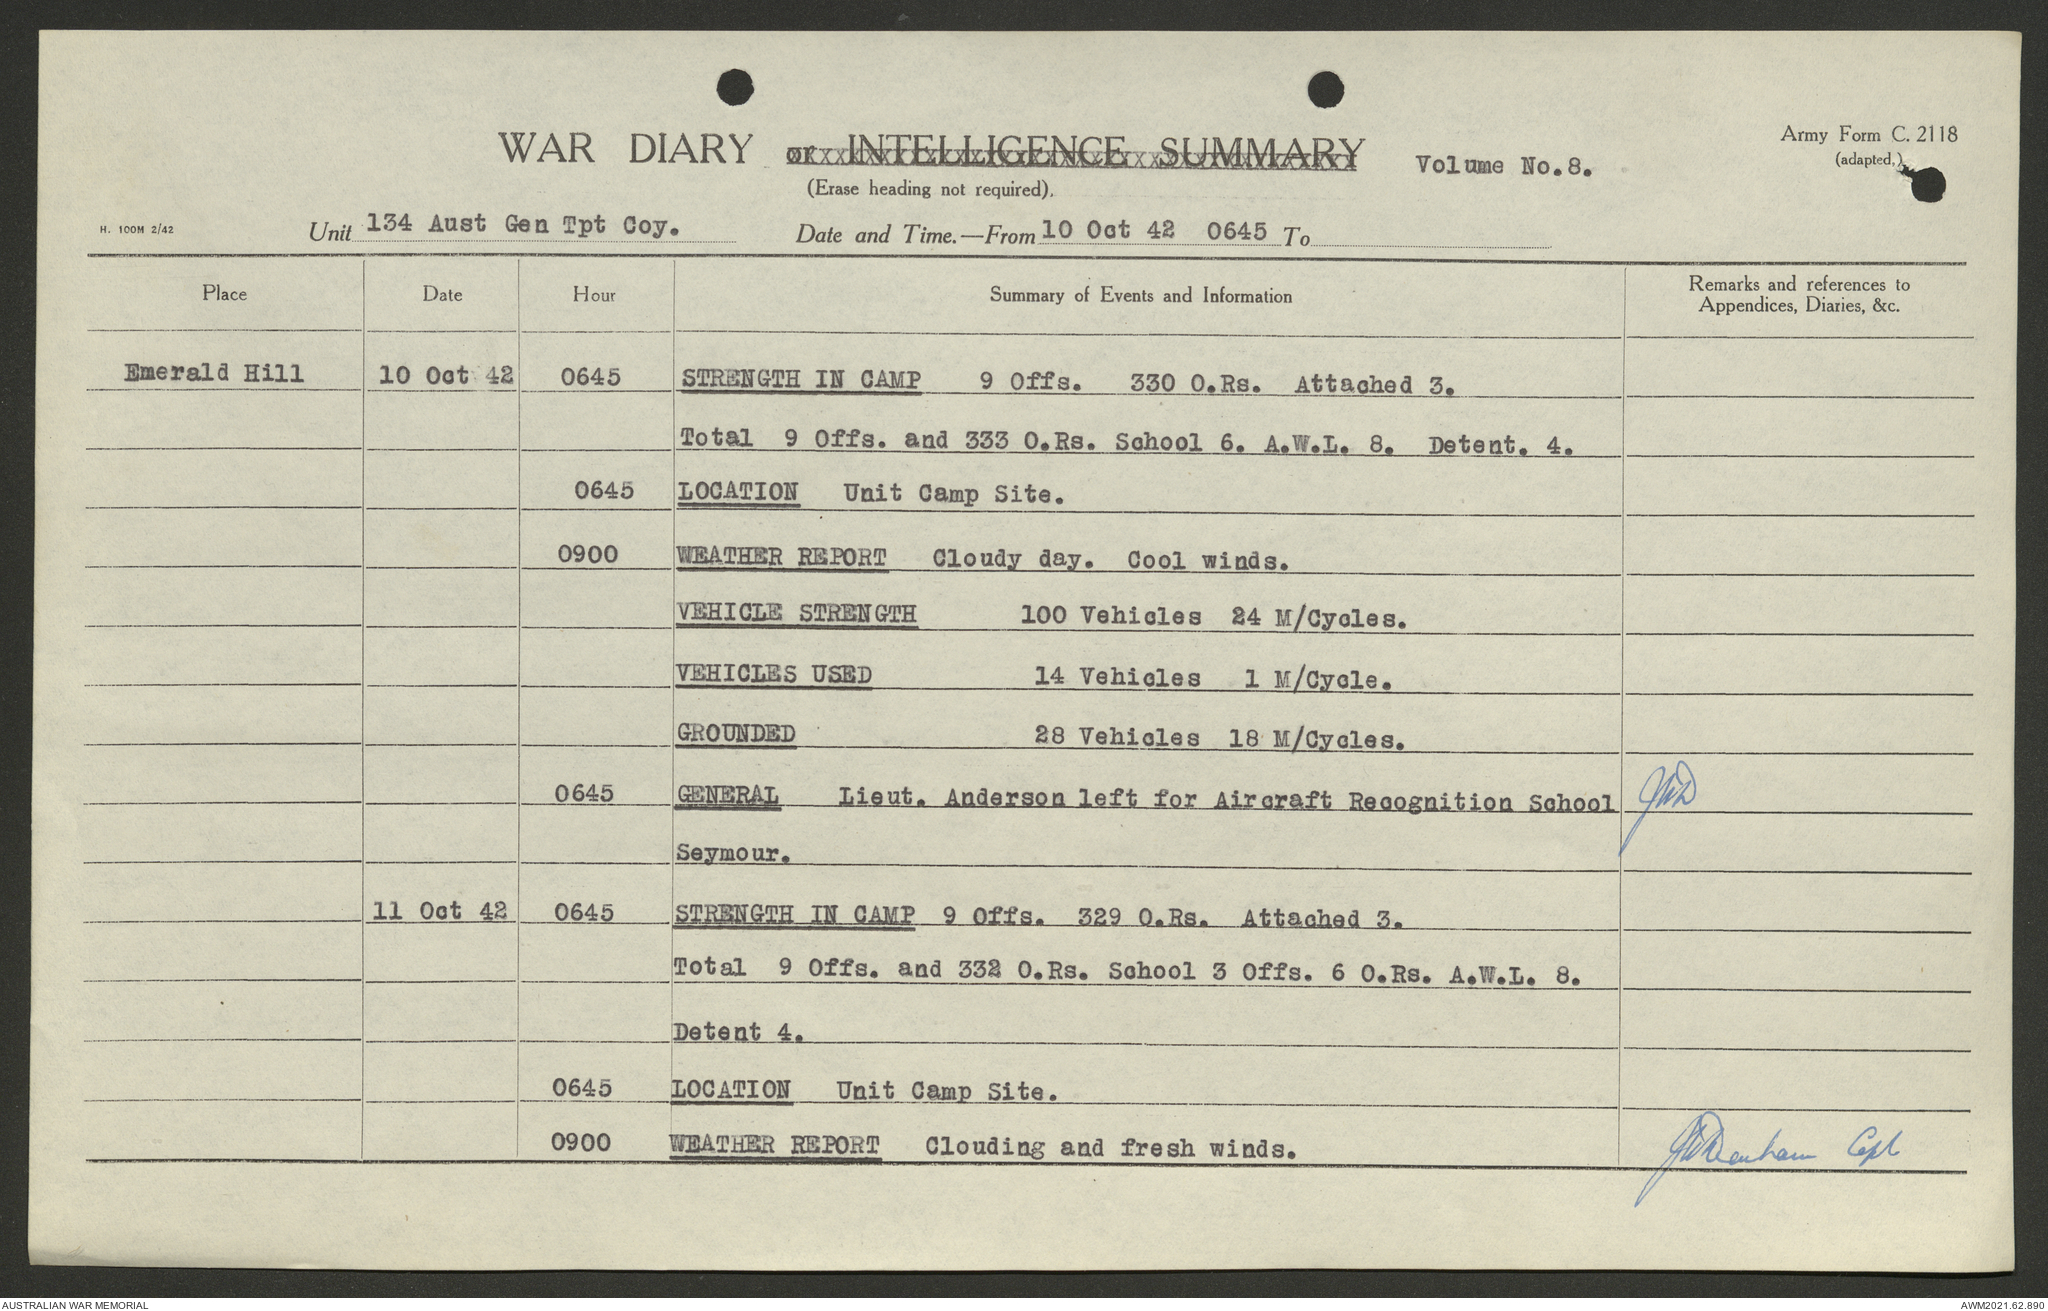 WAR DIARY or INTELLIGENCE SUMMARY Volume No.8.
Army Form C. 2118
(adapted.)
(Erase heading not required).
H. 100M 2/42
Unit 134 Aust Gen Tpt Coy. Date and Time.—From 10 Oct 42 0645 To
Place Date Hour Summary of Events and Information Remarks and references to
Appendices, Diaries, &c.
Emerald Hill 10 Oct 42 0645 STRENGTH IN CAMP 9 Offs. 330 O.Rs. Attached 3.
Total 9 Offs. and 333 O.Rs. School 6. A.W.L. 8. Detent. 4.
0645 LOCATION Unit Camp Site.
0900 WEATHER REPORT Cloudy day. Cool winds.
VEHICLE STRENGTH 100 Vehicles 24 M/Cycles.
VEHICLES USED 14 Vehicles 1 M/Cycle.
GROUNDED 28 Vehicles 18 M/Cycles.
0645 GENERAL Lieut. Anderson left for Aircraft Recognition School
Seymour.
11 Oct 42 0645 STRENGTH IN CAMP 9 Offs. 329 O.Rs. Attached 3.
Total 9 Offs. and 332 O.Rs. School 3 Offs. 6 O.Rs. A.W.L. 8.
Detent 4.
0645 LOCATION Unit Camp Site.
0900 WEATHER REPORT Clouding and fresh winds.
Capt
AUSTRALIAN WAR MEMORIAL AWM2021.62.890